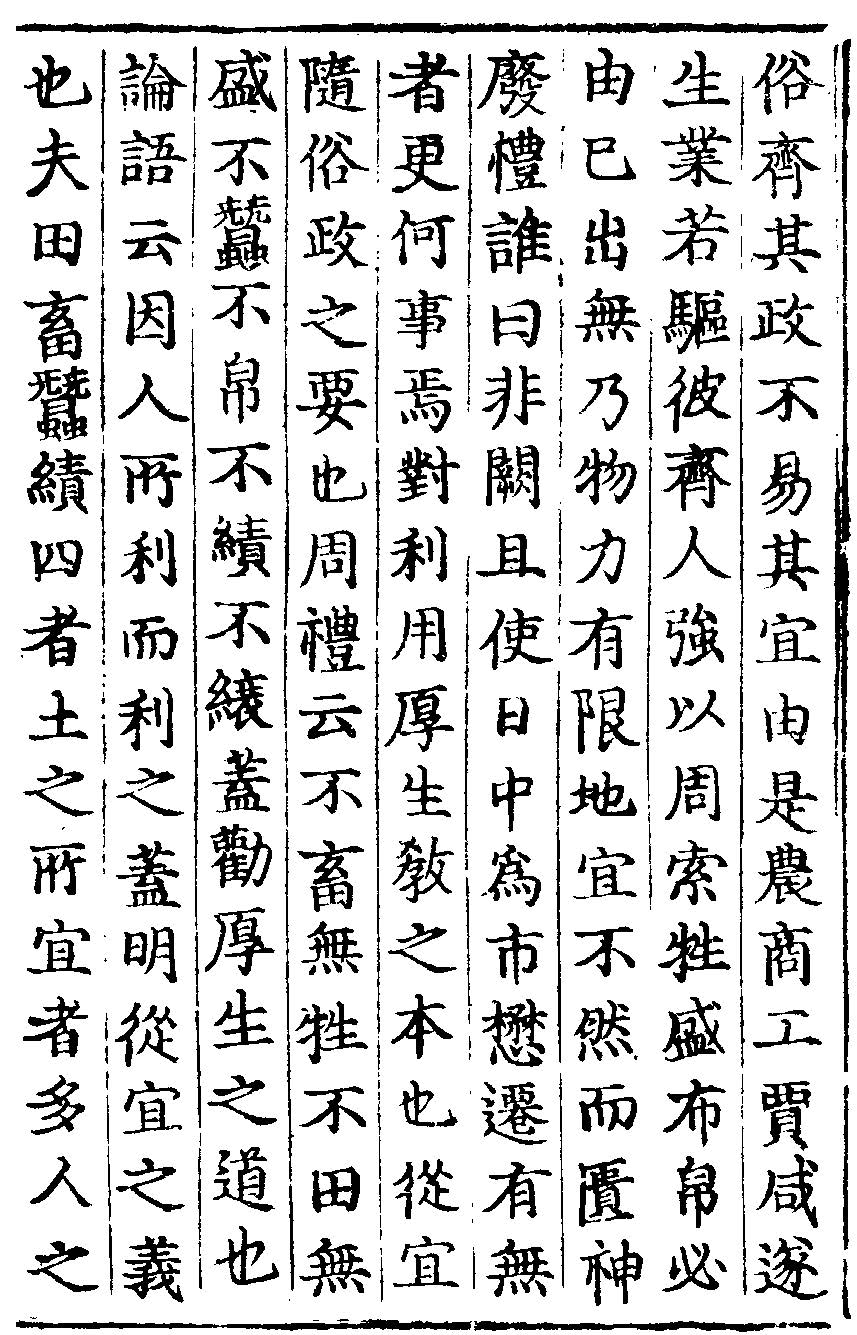 俗齊其政不易其宜由是農商工賈咸遂
生業若驅彼齊人強以周索牲盛布帛必
由已出無乃物力有限地宜不然而匱神
廢禮誰曰非闕且使日中爲市懋遷有無
者更何事焉對利用厚生教之本也從宜
隨俗政之要也周禮云不畜無牲不田無
盛不蠶不帛不績不縗蓋勸厚生之道也
論語云因人所利而利之蓋明從宜之義
也夫田畜蠶績四者土之所宜者多人之